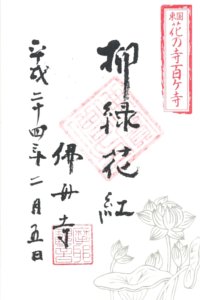 東国
花の寺百ヶ寺
柳緑花紅
佛母寺
平成二十四年二月五日